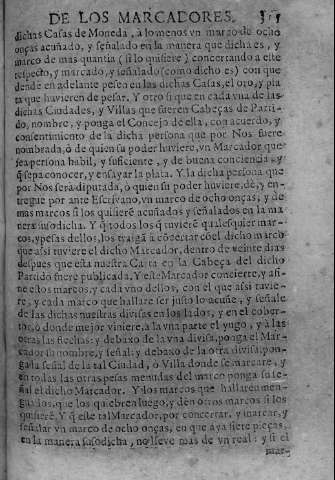 DE LOS MARCADORES.
dichas Casas de Moneda, à lo menos vn marco de ocho
onças acuñado, y señalado en la manera que dicha es, y
marco de mas quantia (si lo quisiere) concertando a este
respecto, y marcado, y señalado (como dicho es) con que
dende en adelante pesen en las dichas Casas, el oro, y pla
ta que huvieren de pesar. Y otro si que en cada vna de las
dichas Ciudades, y Villas que fueren Cabeças de Parti-
do, nombre, y ponga el Concejo de ella, con acuerdo, y
consentimiento de la dicha persona que por Nos fuere
nombrada, ò de quien su poder huviere, vn Marcador que
sea persona habil, y suficiente, y de buena conciencia, y
q̃ sepa conocer, y ensayar la plata. Y la dicha persona que
por Nos será diputada, o quien su poder huviere, dè, y en-
tregue por ante Escrivano, vn marco de ocho onças, y de
mas marcos si los quisierẽ acuñados y señalados en la ma
nera susodicha. Y q̃ todos los q̃ tuvierẽ qualesquier mar-
cos, y pesas dellos, los traigã à cõcertar cõ el dicho marco
que assi tuviere el dicho Marcador, dentro de veinte dias
despues que esta nuestra Carta en la Cabeça del dicho
Partido fuere publicada, Y este Marcador concierte, y afi-
ne estos marcos, y cada vno dellos, con el que assi tuvie-
re, y cada marco que hallare ser justo lo acuñe, y señale
de las dichas nuestras divisas en los lados, y en el cober-
tor, ò donde mejor viniere, à la vna parte el yugo, y à las
otras las flechas: y debaxo de la vna divisa, ponga el Mar-
cador su nombre, y señal: y debaxo de la otra divisa, pon-
ga la señal de la tal Ciudad, ò Villa donde se marcare, y
en todas las otras pesas menudas del marco ponga su se-
ñal el dicho Marcador. Y los marcos que hallaren men-
guados, que los quiebren luego, y dèn otros marcos si los
quisierẽ, Y q̃ este tal Marcador, por concertar, y marcar, y
señalar vn marco de ocho onças, en que aya siete pieças,
en la manera susodicha, no lleve mas de vn real: y si el
mar-